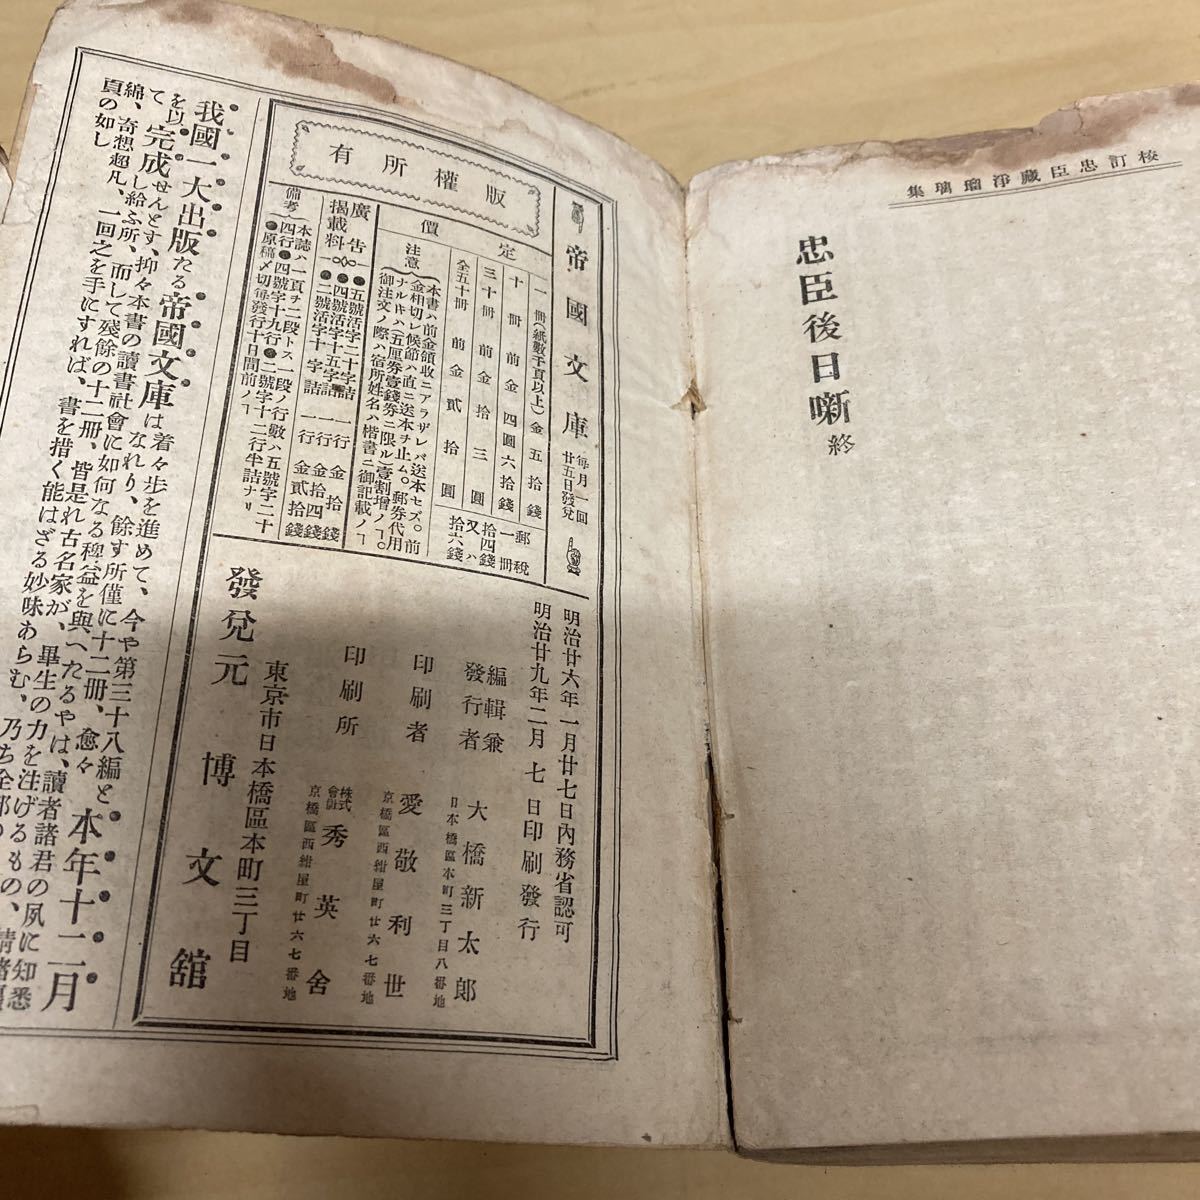 校訂忠臣藏淨瑠璃集
忠臣後日噺終
帝國文庫
每月一回
廿五日發兌
定價
一冊(紙數千頁以上)金五拾錢
十冊前金四圓六拾錢
三十冊前金拾三圓
全五十冊前金貳拾圓
郵稅
一冊
拾四錢
又ハ
拾六錢
注意
本書ハ前金領收ニアラザレバ送本セズ。前
金相切レ候節ハ直ニ送本チ止ム。郵券代用
ナルトキハ(五厘券壹錢券ニ限ル)壹割增ノヿ。
御注文ノ際ハ宿所姓名ハ楷書ニ御記載ノヿ
廣告
揭載料
●五號活字二十字詰一行金拾錢
●四號活字十五字詰一行金拾四錢
●二號活字十字詰一行金貳拾錢
備考
本誌ハ一頁ヲ二段トス一段ノ行數ハ五號字二十
四行●四號字十九行●二號字十二行半詰ナリ
●原稿〆切每發行十日間前ノヿ
版權所有
明治廿六年一月廿七日內務省認可
明治廿九年二月七日印刷發行
編輯兼
發行者
大橋新太郎
日本橋區本町三丁目八番地
印刷者
愛敬利世
京橋區西紺屋町廿六七番地
印刷所
株式
會社
秀英舍
京橋區西紺屋町廿六七番地
東京市日本橋區本町三丁目
發兌元博文舘
我國一大出版たる帝國文庫は着々步を進めて、今や第三十八編と
なれり、餘す所僅に十二冊、愈々本年十二月
を以て完成せんとす、抑々本書の讀書社會に如何なる裨益を與へたるやは、讀者諸君の夙に知悉
し給ふ所、而して殘餘の十二冊、皆是れ古名家が、畢生の力を注げるもの、
綿、奇想超凡、一回之を手にすれば、書を措く能はざる妙味あらむ、乃ち全部の
頁の如し